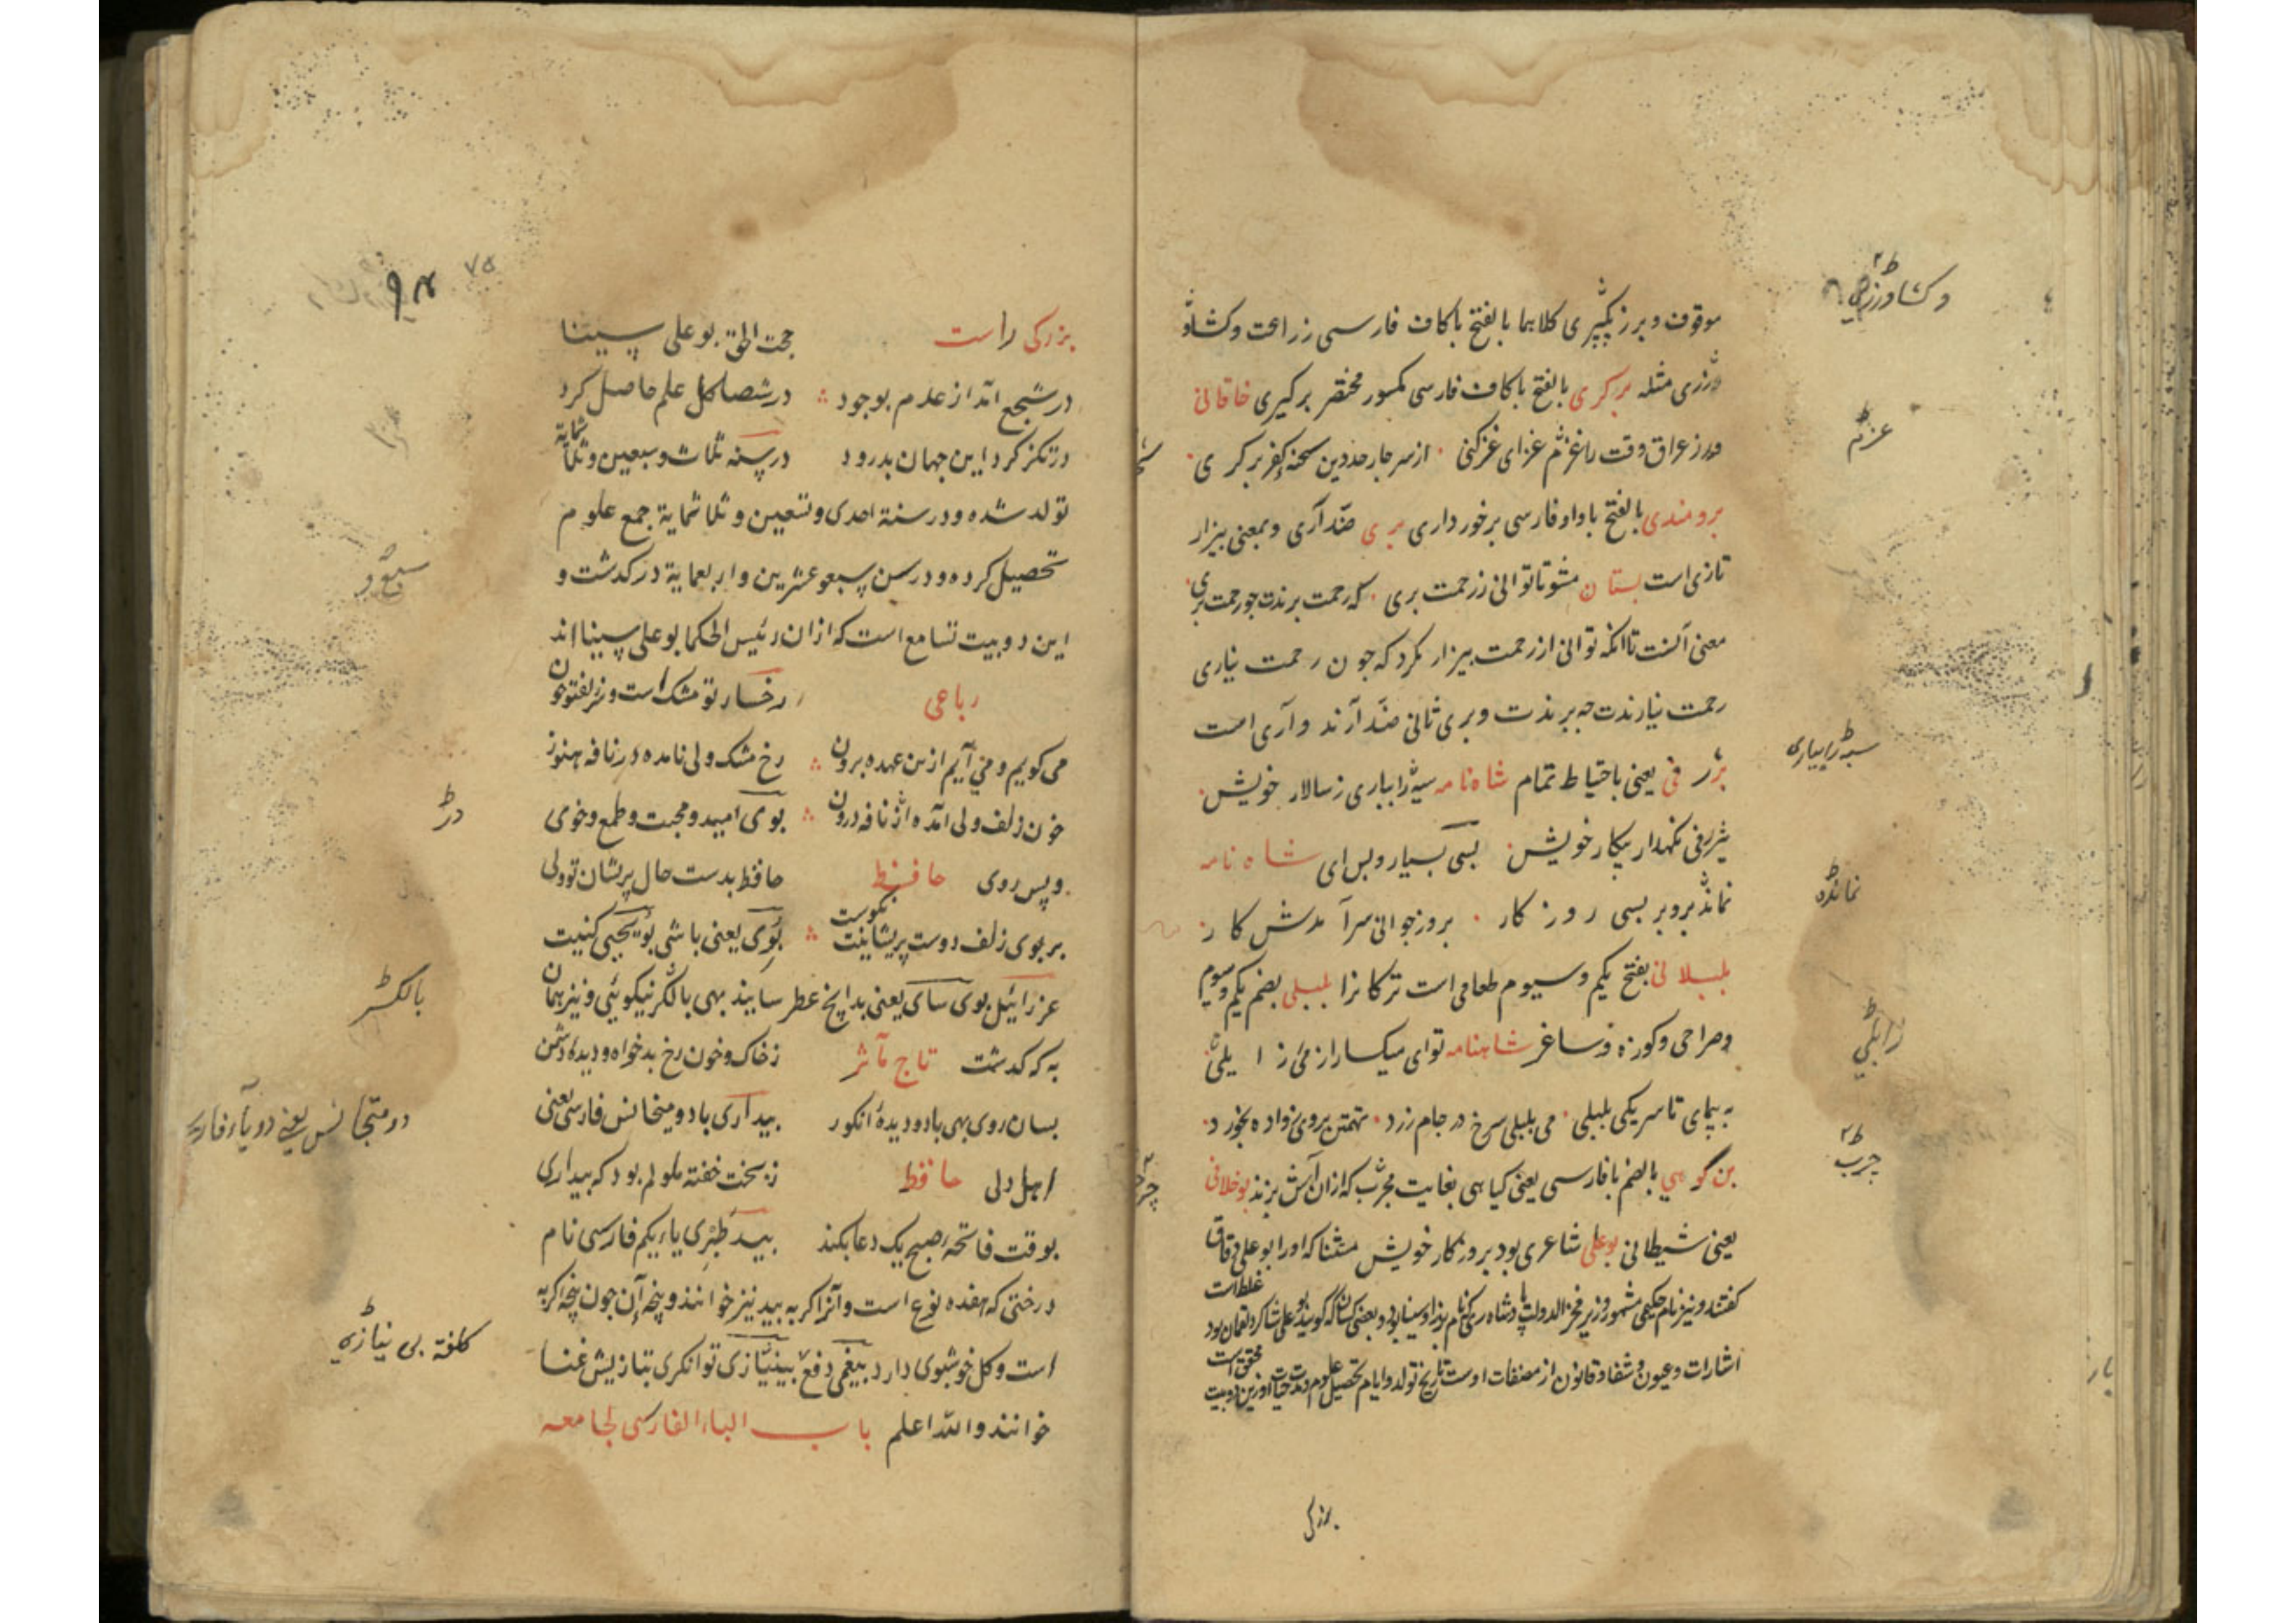 موقوف و برزیگیری کلاهما بالفتح باکاف فارسی زراعت وکشاو
ورزی مثله برگری بالفتح باکاف فارسی مکسور مختصر برگیری خاقانی
ورز عراق وقت را غزم غزای غز کنی از سر چار حد دین شحنه کفر برگری
برومندی بالفتح باواو فارسی برخورداری بری ضد آری و بمعنی بیزار
تازی است بستان مشو تا توانی ز رحمت بری که رحمت برندت چو رحمت بری
معنی آنست تا آنکه توانی از رحمت بیزار مگرد که چون رحمت نیاری
رحمت نیارندت چه برندت و بری ثانی ضد آرند و آری است
بژرفی یعنی باحتیاط تمام شاه نامه سپه را بیاری ز سالار خویش
بژرفی نگهدار پیکار خویش بسی بسیار و بس ای شاه نامه
نماند برو بر بسی روزگار بروز جوانی سرآمدش کار
بلبلانی بفتح یکم و سیوم طعامی است ترکانرا بلبلی بضم یکم و سیوم
وصراحی وکوزه و ساغر شاهنامه توای میکسار از می زابلی
به پیمای تا سر یکی بلبلی می بلبلی سرخ در جام زرد تهمتن بروی زواره بخورد
بن کوهی بالضم با فارسی یعنی کیاهی بغایت چرب که ازان آش پزند بوخلانی
یعنی شیطانی بوعلی شاعری بود بروزگار خویش مستثنا که اورا بوعلی دقاق
غلط است
گفتند و نیز نام حکیمی مشهور وزیر فخر الدولت پادشاه ری که نام پدر او سینا بود و بعضی کسان که گویند بوعلی شاگرد لقمان بود
محقق است
اشارات وعیون و شفا و قانون از مصنفات اوست تاریخ تولد وایام تحصیل علوم و مدت حیات او زین دو بیت
بزرکی
وکشاورزی
غزم
سپه را بیاری
نمانده
زابلی
چرب
بزرکی راست حجت الحق بوعلی سینا
در شجع آمد از عدم بوجود در شصا کل علم حاصل کرد
در تکز کرد این جهان بدرود در سنه ثلاث و سبعین و ثلثمایة
تولد شده و در سنة احدی وتسعین و ثلاثمایة جمع علوم
تحصیل کرده و در سن سبع و عشرین واربعمایة درکذشت و
این دو بیت تسامع است که ازان رئیس الحکما بوعلی سینا اند
رباعی رخسار تو مشک است و زلفت خون
می کویم و می آیم ازین عهده برون رخ مشک ولی نامده در نافه هنوز
خون زلف ولی آمده از نافه درون بوی امید و محبت و طمع وخوی
و پس روی حافظ حافظ بدست حال پریشان تو ولی
بر بوی زلف دوست پریشانیت نکوست بوی یعنی باشی بویحیی کنیت
عزرائیل بوی سای یعنی بدانچه عطر سایند بهی بالکسر نیکوئی و نیز همان
به که کدشت تاج مآثر ز خاک و خون رخ بدخواه و دیده دشمن
بسان روی بهی باد و دیدۀ انکور بیداری با دو متجانس فارسی یعنی
اهل دلی حافظ ز بخت خفته ملولم بود که بیداری
بوقت فاتحۀ صبح یک دعا بکند بید طبری یاء یکم فارسی نام
درختی که هفده نوع است وآنرا کربه بید نیز خوانند و پنجه آن چون پنجه کربه
است وکل خوشبوی دارد بیغمی دفع بینیازی توانکری بتازیش غنا
خوانند والله اعلم باب الباء الفارسی لجامعه
٧٥
٩٤
سبع و
در
بالکسر
دو متجانس یعنی دو یاء فارسی
کلفة بی نیازی